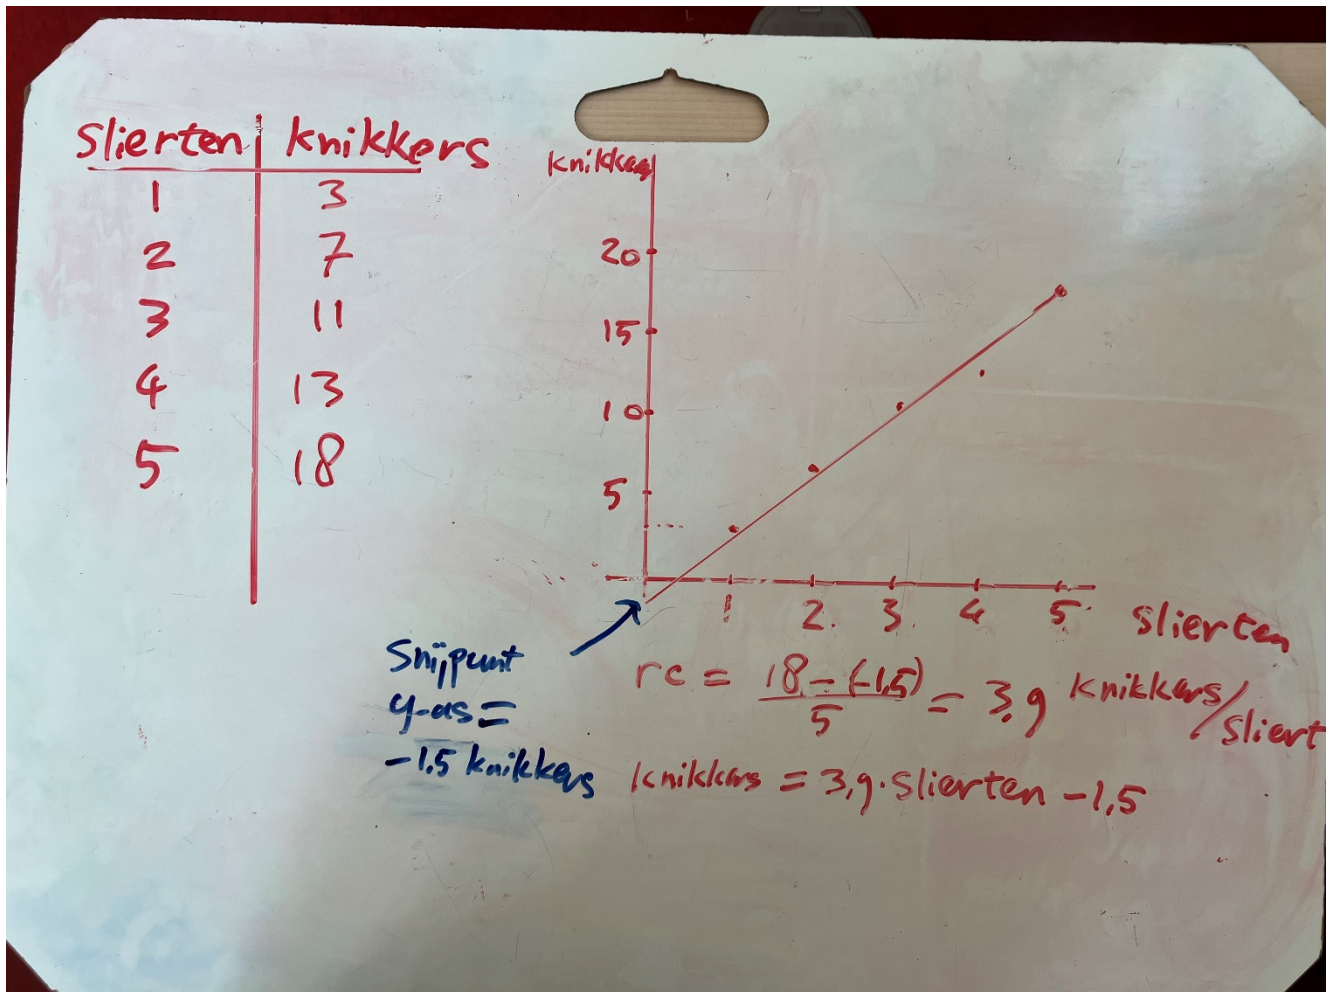 slierten knikkers
1 3
2 7
3 11
4 13
5 18
knikkers
20
15
10
5
1 2 3 4 5 slierten
Snijpunt
y-as =
-1.5 knikkers
rc = 18 - (-1,5) / 5 = 3,9 knikkers/sliert
knikkers = 3,9 · slierten - 1,5